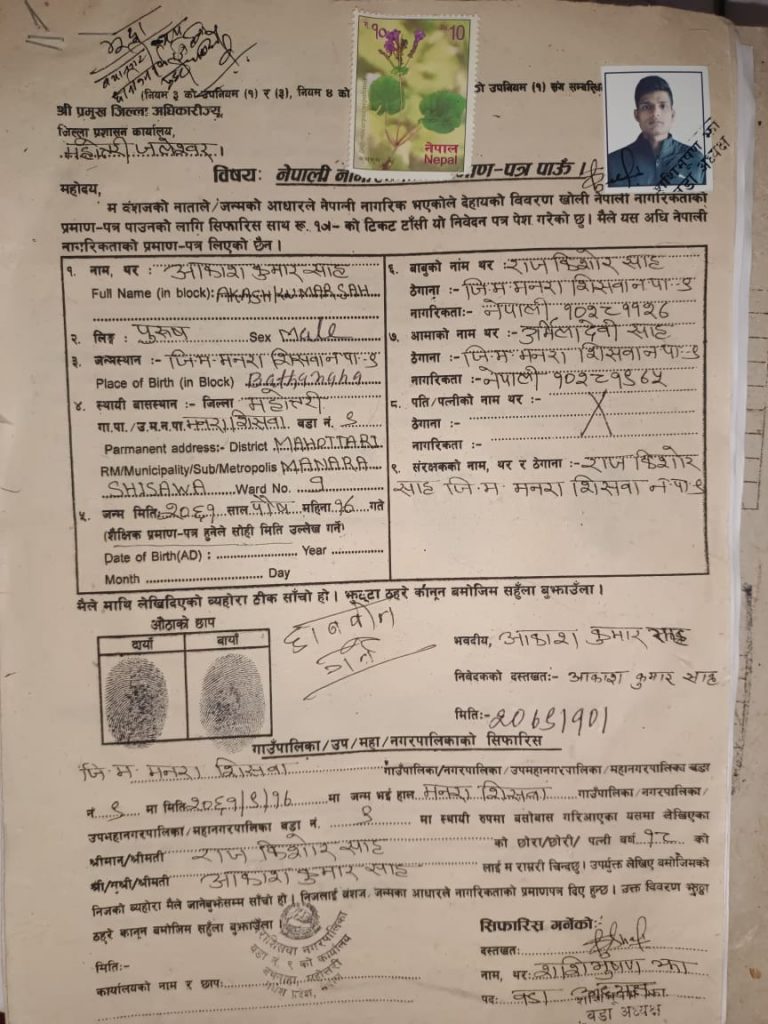 रु १० Rs 10
नेपाल
Nepal
(नियम ३ को उपनियम (१) र (३), नियम ४ को
को उपनियम (१) संग सम्बन्धि
श्री प्रमुख जिल्ला अधिकारीज्यू,
जिल्ला प्रशासन कार्यालय,
महोत्तरी जलेश्वर।
शशिभुषण झा
वडा अध्यक्ष
विषयः नेपाली
माण-पत्र पाऊँ ।
महोदय,
म वंशजको नाताले/जन्मको आधारले नेपाली नागरिक भएकोले देहायको विवरण खोली नेपाली नागरिकताको
प्रमाण-पत्र पाउनको लागि सिफारिस साथ रू. १०/- को टिकट टाँसी यो निवेदन पत्र पेश गरेको छु । मैले यस अघि नेपाली
नागरिकताको प्रमाण-पत्र लिएको छैन ।
१. नाम, थर : आकाश कुमार साह
Full Name (in block): AKASH KUMAR SAH
२. लिङ्ग : पुरुष Sex Male
३. जन्मस्थान :- जि.म.मनरा शिसवा न.पा.-९
Place of Birth (in Block) Bathanaha
४. स्थायी बासस्थान :- जिल्ला महोत्तरी
गा.पा./उ.म.न.पा. मनरा शिसवा वडा नं. ९
Parmanent address:- District MAHOTTARI
RM/Municipality/Sub/Metropolis MANARA
SHISAWA Ward No. 9
५. जन्म मिति: २०६१ साल पौष महिना १६ गते
(शैक्षिक प्रमाण-पत्र हुनेले सोही मिति उल्लेख गर्ने)
Date of Birth(AD) : Year
Month Day
६. बाबुको नाम थर : राज किशोर साह
ठेगाना :- जि.म.मनरा शिसवा न.पा.-९
नागरिकता:- नेपाली
७. आमाको नाम थर :- उर्मिला देवी साह
ठेगाना :- जि.म.मनरा शिसवा न.पा.-९
नागरिकता :- नेपाली
८. पति/पत्नीको नाम थर :-
ठेगाना :-
नागरिकता :-
९. संरक्षकको नाम, थर र ठेगाना :- राज किशोर
साह जि.म. मनरा शिसवा न.पा.-९
मैले माथि लेखिदिएको ब्यहोरा ठीक साँचो हो । झुट्टा ठहरे कानून बमोजिम सहुँला बुझाउँला ।
औंठाको छाप
दायाँ बायाँ
छानविन
गर्ने
भवदीय, आकाश कुमार साह
निवेदकको दस्तखतः- आकाश कुमार साह
मितिः-
गाउँपालिका/उप/महा/नगरपालिकाको सिफारिस
जि.म. मनरा शिसवा गाउँपालिका/नगरपालिका/उपमहानगरपालिका/महानगरपालिका वडा
नं. ९ मा मिति २०६१/९/१६ मा जन्म भई हाल मनरा शिसवा गाउँपालिका/नगरपालिका/
उपमहानगरपालिका/महानगरपालिका वडा नं. ९ मा स्थायी रुपमा बसोबास गरिआएका यसमा लेखिएका
श्रीमान/श्रीमती राज किशोर साह को छोरा/छोरी/ पत्नी वर्ष १८ को
श्री/सुश्री/श्रीमती आकाश कुमार साह लाई म राम्ररी चिन्दछु । उपर्युक्त लेखिए बमोजिमको
निजको ब्यहोरा मैले जानेबुझेसम्म साँचो हो । निजलाई वंशज, जन्मका आधारले नागरिकताको प्रमाणपत्र दिए हुन्छ । उक्त विवरण झुट्ठा
ठहरे कानून बमोजिम सहुँला बुझाउँला ।
सिफारिस गर्नेको:
दस्तखतः
मितिः-
नाम, थरः शशिभुषण झा
कार्यालयको नाम र छापः
पदः वडा अध्यक्ष
वडा अध्यक्ष